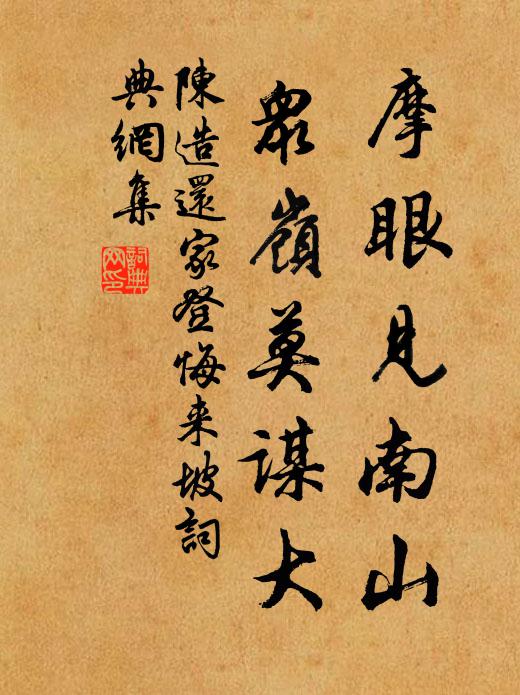 摩眼見南山
眾嶺莫謀大
陳造還家登悔来坡詞
典網集
詞典
网印